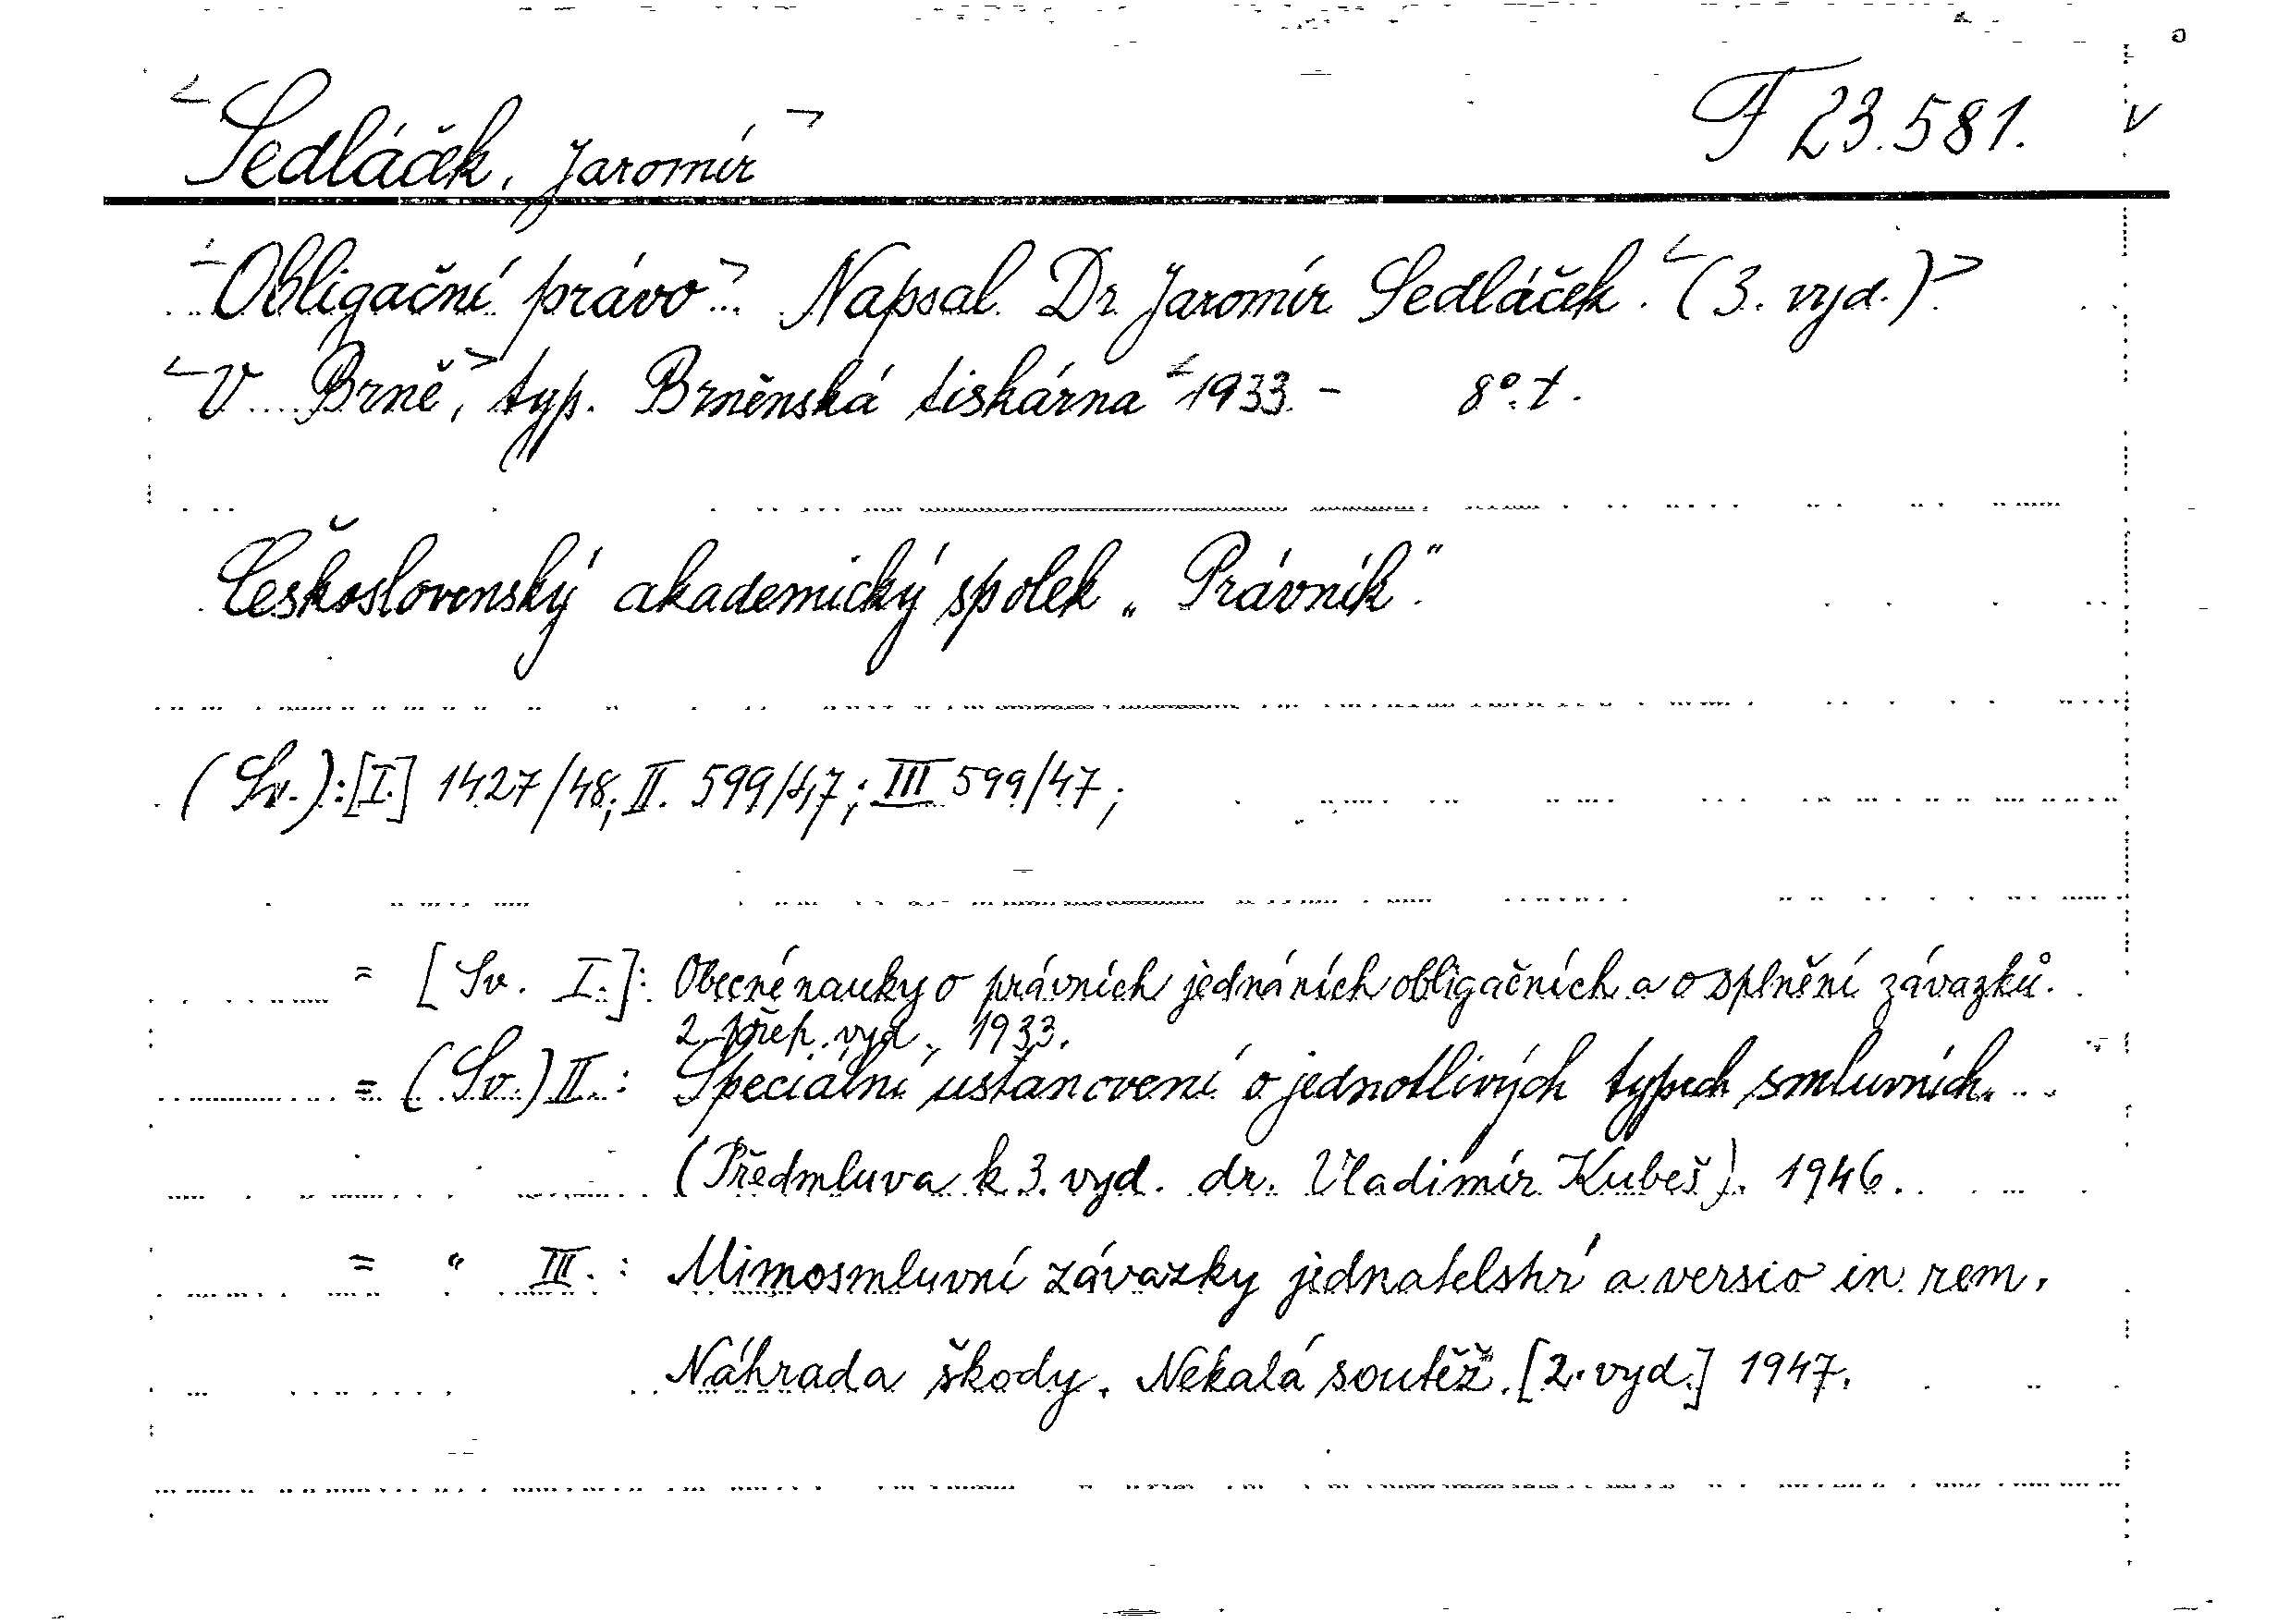 Sedláček, Jaromír F 23.581.
Obligační právo. Napsal Dr. Jaromír Sedláček. (3. vyd.)
V Brně, typ. Brněnská tiskárna 1933. - 8°. t.
Československý akademický spolek „Právník“.
(Sv.): [I.] 1427/48; II. 599/47; III 599/47;
= [Sv. I.]: Obecné nauky o právních jednáních obligačních a o splnění závazků.
2. přep. vyd., 1933.
= (Sv.) II.: Speciální ustanovení o jednotlivých typech smluvních.
(Předmluva k 3. vyd. dr. Vladimír Kubeš). 1946.
= " III.: Mimosmluvní závazky jednatelství a versio in rem.
Náhrada škody. Nekalá soutěž. [2. vyd.] 1947.